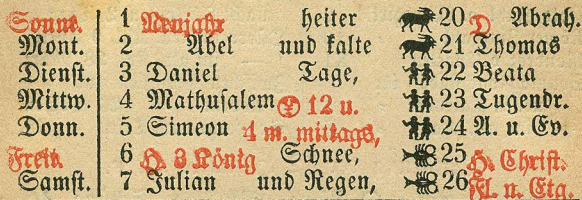 Sonnt. 1 Neujahr heiter 20 D Abrah.
Mont. 2 Abel und kalte 21 Thomas
Dienst. 3 Daniel Tage, 22 Beata
Mittw. 4 Mathusalem 12 u. 23 Tugendr.
Donn. 5 Simeon 4 m. mittags, 24 A. u. Ev.
Freit. 6 H. 3 König Schnee, 25 H. Christ.
Samst. 7 Julian und Regen, 26 Fl. u. Etg.